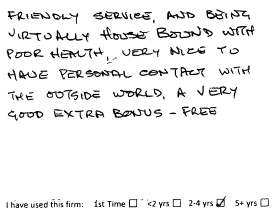 FRIENDLY SERVICE, AND BEING
VIRTUALLY HOUSE BOUND WITH
POOR HEALTH, VERY NICE TO
HAVE PERSONAL CONTACT WITH
THE OUTSIDE WORLD, A VERY
GOOD EXTRA BONUS - FREE
I have used this firm: 1st Time ☐ <2 yrs ☐ 2-4 yrs ☑ 5+ yrs ☐